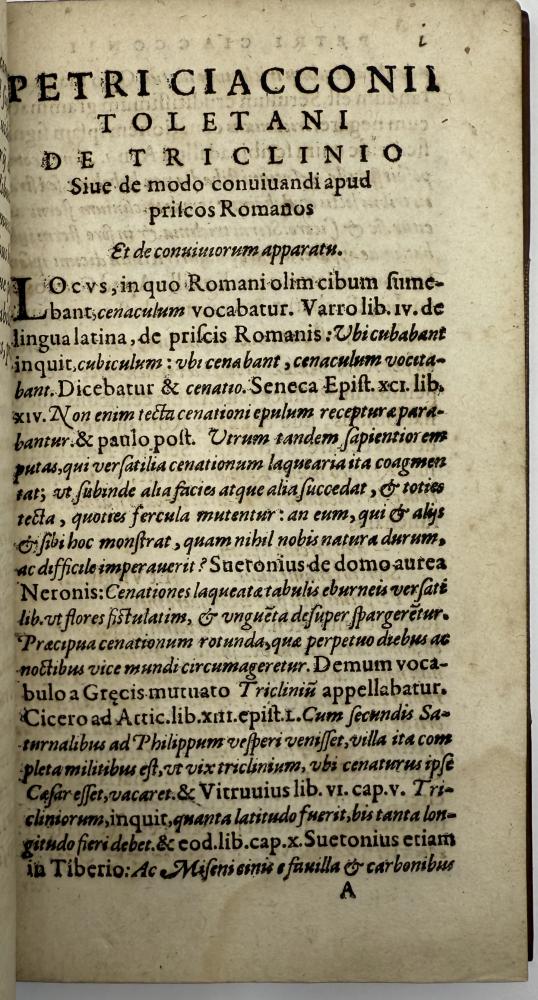 i
PETRI CIACCONII
TOLETANI
DE TRICLINIO
Siue de modo conuiuandi apud
priſcos Romanos
Et de conuiuiorum apparatu.
LOcvs, in quo Romani olim cibum ſume-
bant, cenaculum vocabatur. Varro lib. iv. de
lingua latina, de priſcis Romanis: Vbi cubabant
inquit, cubiculum: vbi cenabant, cenaculum vocita-
bant. Dicebatur & cenatio. Seneca Epiſt. xci. lib.
xiv. Non enim tecta cenationi epulum recepturæ para-
bantur. & paulo poſt. Vtrum tandem ſapientiorem
putas, qui verſatilia cenationum laquearia ita coagmen
tat; vt ſubinde alia facies atque alia ſuccedat, & toties
tecta, quoties fercula mutentur: an eum, qui & alijs
& ſibi hoc monſtrat, quam nihil nobis natura durum,
ac difficile imperauerit? Suetonius de domo aurea
Neronis: Cenationes laqueatæ tabulis eburneis verſati
lib. vt flores fiſtulatim, & vnguẽta deſuper ſpargerẽtur.
Præcipua cenationum rotunda, quæ perpetuo diebus ac
noctibus vice mundi circumageretur. Demum voca-
bulo a Gręcis mutuato Tricliniũ appellabatur.
Cicero ad Attic. lib. xiii. epiſt. l. Cum ſecundis Sa-
turnalibus ad Philippum veſperi veniſſet, villa ita com
pleta militibus eſt, vt vix triclinium, vbi cenaturus ipſe
Cæſar eſſet, vacaret. & Vitruuius lib. vi. cap. v. Tri-
cliniorum, inquit, quanta latitudo fuerit, bis tanta lon-
gitudo fieri debet. & eod. lib. cap. x. Suetonius etiam
in Tiberio: Ac Miſeni cinis e fauilla & carbonibus
A